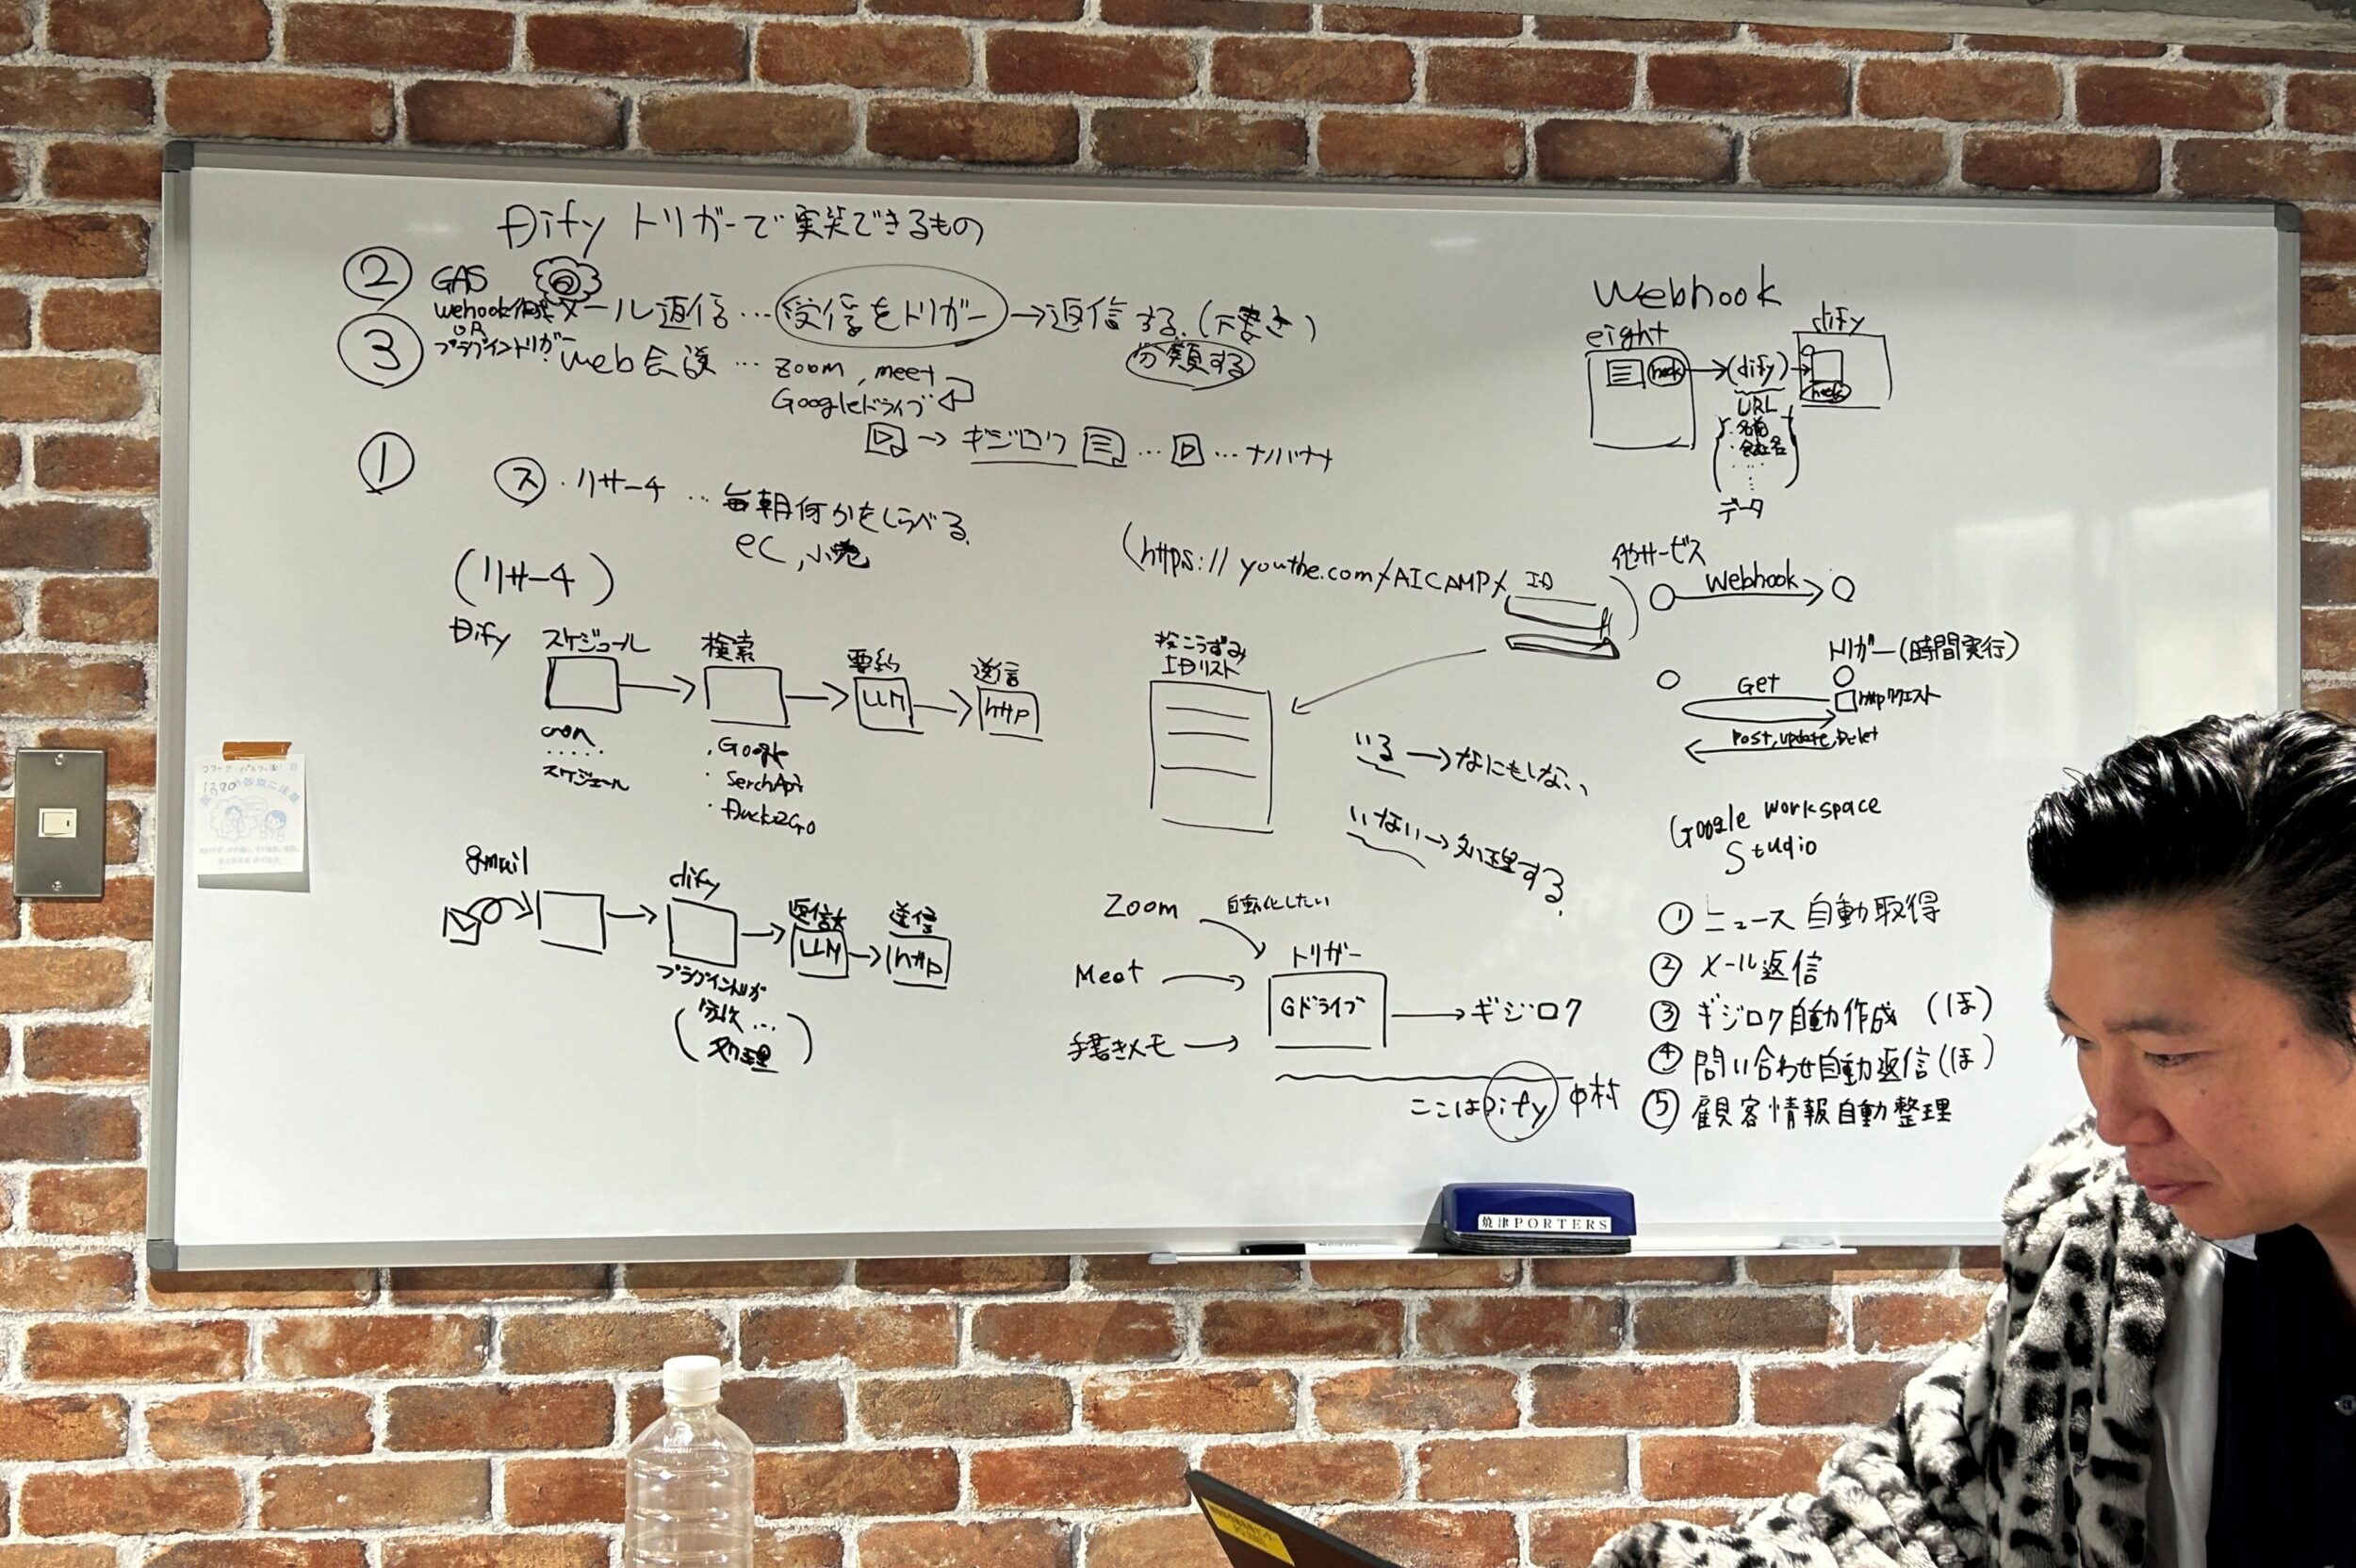 Dify トリガーで実装できるもの
② GAS
wehook作成 メール返信 … 受信をトリガー → 返信する。(下書き)
OR
プラグイントリガー
分類する
③ web会議 … zoom, meet
Googleドライブ
→ ギジロク … … ナノバナナ
① ス・リサーチ … 毎朝何かをしらべる。
ec, 小売
(リサーチ)
Dify
スケジュール
検索
要約
送信
LLM
http
cron
・・・・・
スケジュール
・Google
・SerchApi
・Duck2Go
gmail
dify
返信文
送信
LLM
http
プラグイントリガ
(分岐…
処理)
(https://youtbe.com/AICAMP/ ID
投こうずみ
IDリスト
いる → なにもしない
いない → 処理する。
Zoom
自動化したい
Meet
手書きメモ
トリガー
Gドライブ
→ ギジロク
ここはDify 中村
Webhook
eight
dify
hook
(dify)
hook
URL
・名前
・会社名
データ
他サービス
Webhook
トリガー(時間実行)
Get
httpリクエスト
Post, update, Delet
Google workspace
Studio
① ニュース自動取得
② メール返信
③ ギジロク自動作成 (ほ)
④ 問い合わせ自動返信 (ほ)
⑤ 顧客情報自動整理
焼津PORTERS